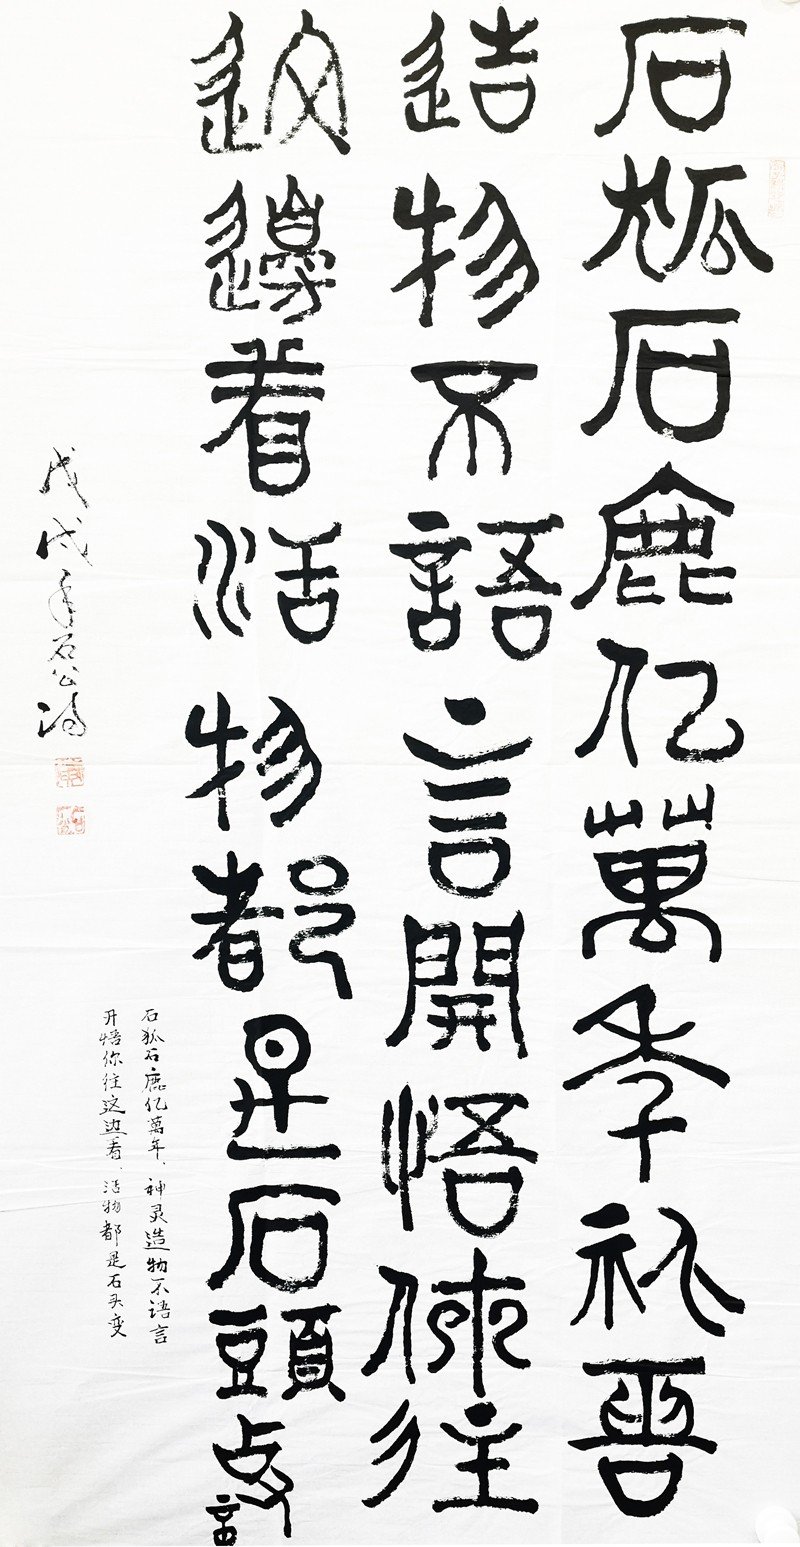 石狐石鹿亿萬年神灵
造物不語言開悟你往
这邊看活物都是石頭变
戊戌年石公
石狐石鹿亿萬年、神灵造物不语言
开悟你往这边看、活物都是石头变